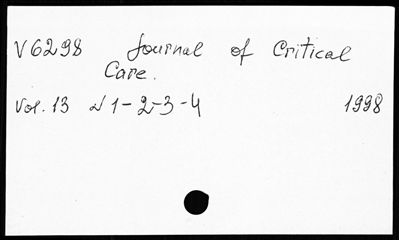 V6298 Journal of Critical
Care.
Vol. 13 N 1-2-3-4 1998